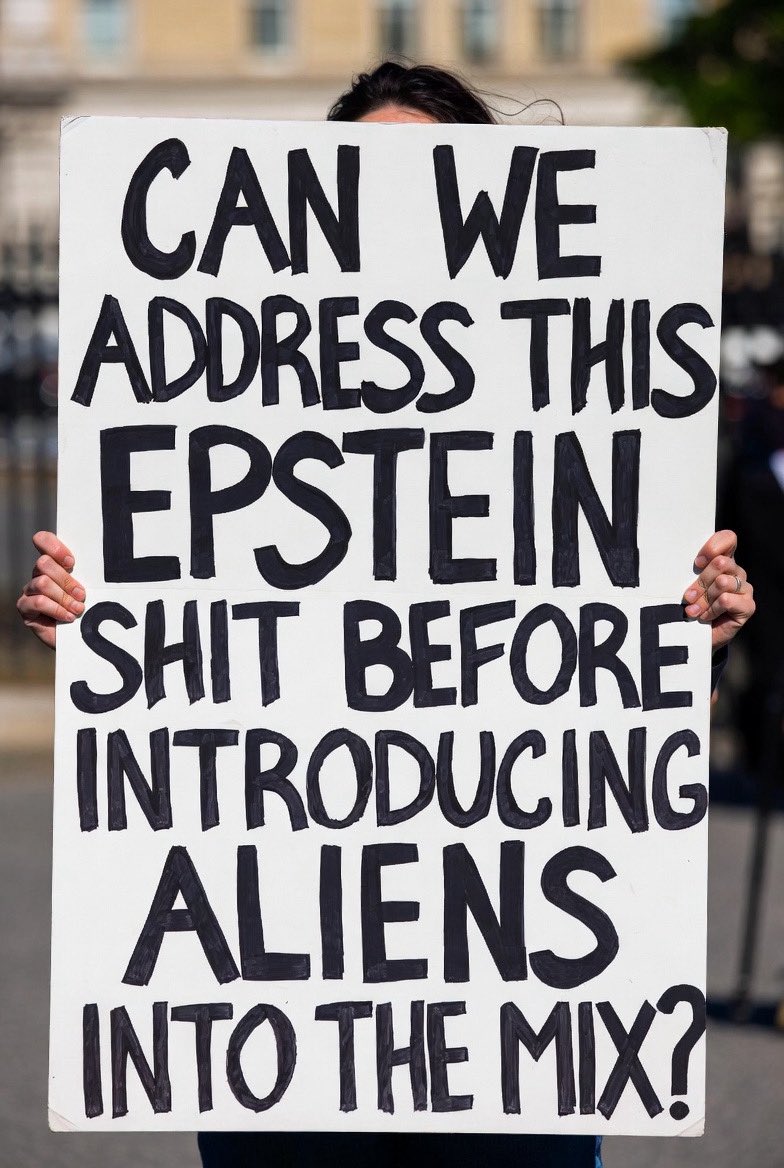 CAN WE
ADDRESS THIS
EPSTEIN
SHIT BEFORE
INTRODUCING
ALIENS
INTO THE MIX?